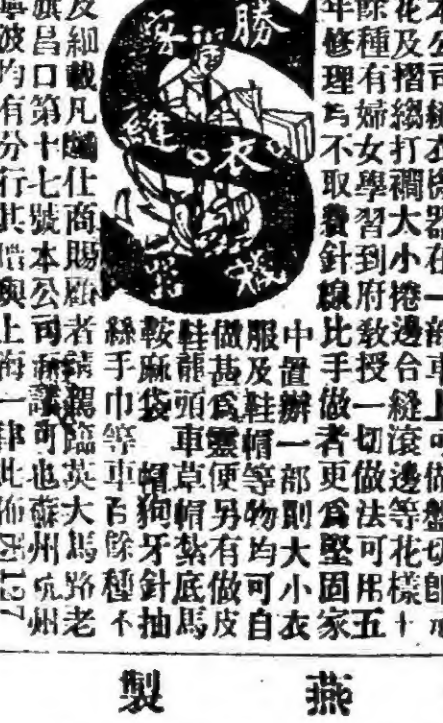 公司縫衣機器在一部車上可做盤切
花及摺縐打襉大小捲邊合縫滾邊等花樣十
餘種有婦女學習到府教授一切做法可用五
年修理為不取費針線比手做者更為堅固家
中置辦一部則大小衣
服及鞋帽等物均可自
做甚為靈便另有做皮
鞋龍頭車草帽紮底馬
鞍麻袋 帽狗牙針抽
絲手巾等車百餘種不
勝家
縫衣
機器
及細載凡仕商賜顧者請駕臨英大馬路老
旗昌口第十七號本公司面議可也蘇州杭州
寧波均有分行其價與上海一律此佈 E127
燕製